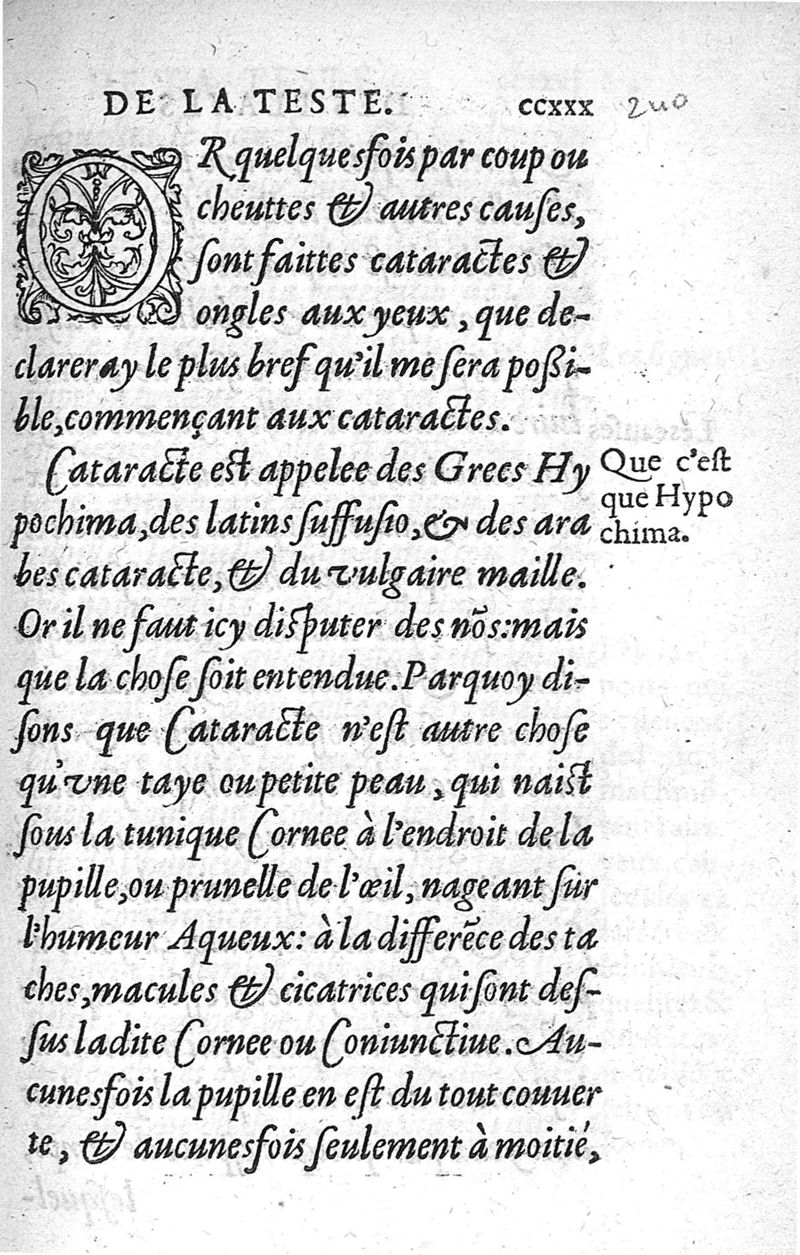 DE LA TESTE. CCXXX 240
OR quelquesfois par coup ou
cheuttes & autres cauſes,
ſont faittes cataractes &
ongles aux yeux, que de-
clareray le plus bref qu'il me ſera poßi-
ble, commençant aux cataractes.
Cataracte eſt appelee des Grecs Hy
pochima, des latins ſuffuſio, & des ara
bes cataracte, & du vulgaire maille.
Or il ne faut icy diſputer des nõs: mais
que la choſe ſoit entendue. Parquoy di-
ſons que Cataracte n'eſt autre choſe
qu'vne taye ou petite peau, qui naiſt
ſous la tunique Cornee à l'endroit de la
pupille, ou prunelle de l'œil, nageant ſur
l'humeur Aqueux: à la differẽce des ta
ches, macules & cicatrices qui ſont deſ-
ſus ladite Cornee ou Coniunctiue. Au-
cunesfois la pupille en eſt du tout couuer
te, & aucunesfois ſeulement à moitié,
Que c'eſt
que Hypo
chima.
leſquel-